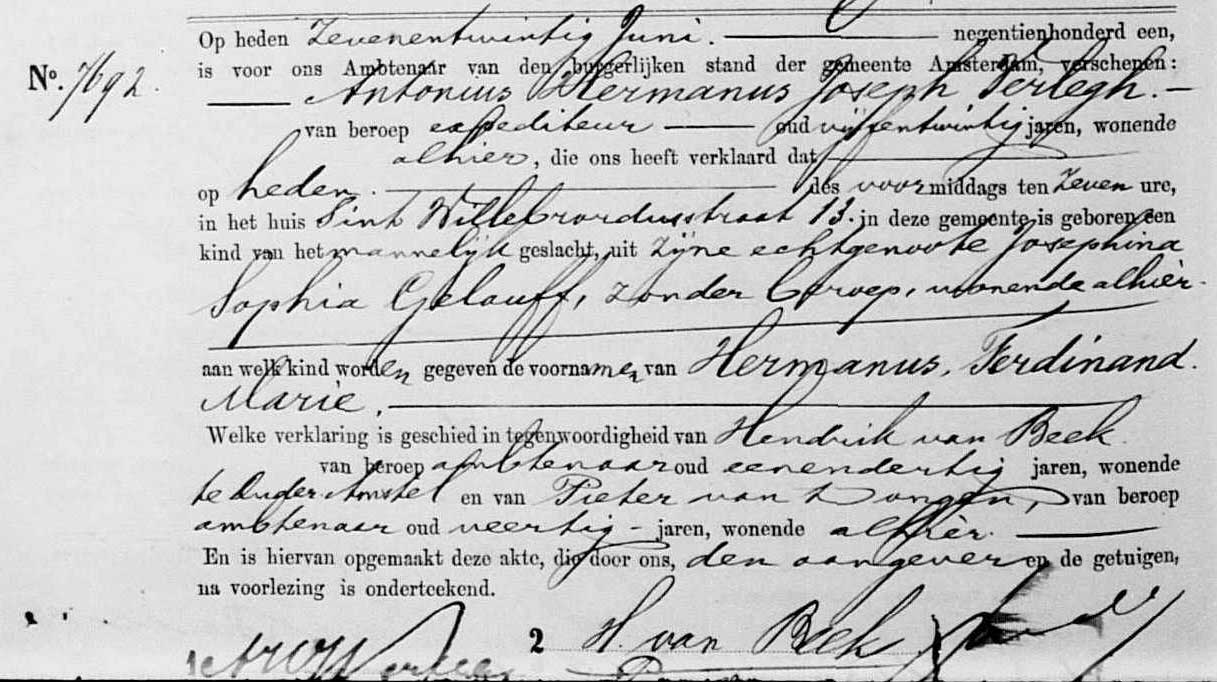 Op heden Zevenentwintig Juni. negentienhonderd een,
is voor ons Ambtenaar van den burgerlijken stand der gemeente Amsterdam, verschenen:
No. 7692.
Antonius Hermanus Joseph Terlegh.
van beroep expediteur oud vijfentwintig jaren, wonende
alhier, die ons heeft verklaard dat
op heden. des voormiddags ten Zeven ure,
in het huis Sint Willebrordusstraat 13. in deze gemeente is geboren een
kind van het mannelijk geslacht, uit zijne echtgenoote Josephina
Sophia Gelauff, zonder beroep, wonende alhier.
aan welk kind worden gegeven de voornamen van Hermanus, Ferdinand.
Marie.
Welke verklaring is geschied in tegenwoordigheid van Hendrik van Beek
van beroep ambtenaar oud eenendertig jaren, wonende
te Ouder Amstel en van Pieter van Dongen, van beroep
ambtenaar oud veertig jaren, wonende alhier.
En is hiervan opgemaakt deze akte, die door ons, den aangever en de getuigen,
na voorlezing is onderteekend.
2 H. van Beek